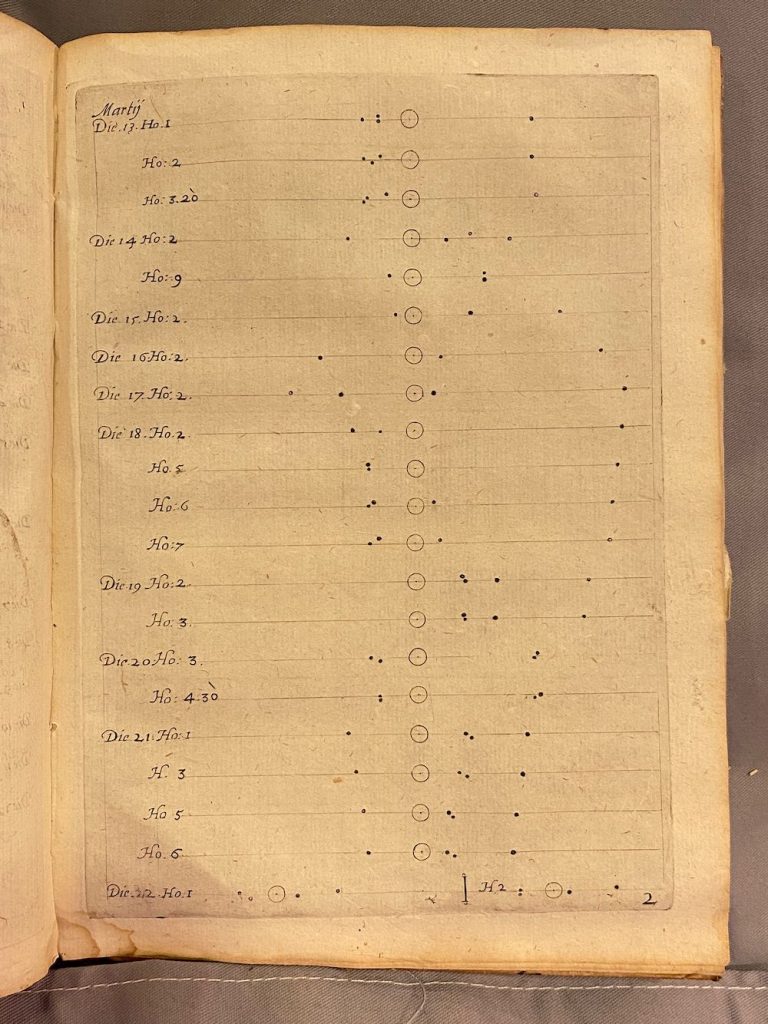 Martij
Die. 13. Ho. 1
Ho: 2
Ho: 3. 20
Die 14 Ho: 2
Ho: 9
Die 15. Ho: 2.
Die 16 Ho: 2.
Die 17. Ho: 2.
Die 18. Ho. 2
Ho. 5
Ho: 6
Ho: 7
Die 19 Ho: 2
Ho: 3.
Die. 20 Ho: 3.
Ho: 4. 30
Die 21. Ho: 1
H. 3
Ho 5
Ho. 6
Die. 22. Ho. 1 H 2
2